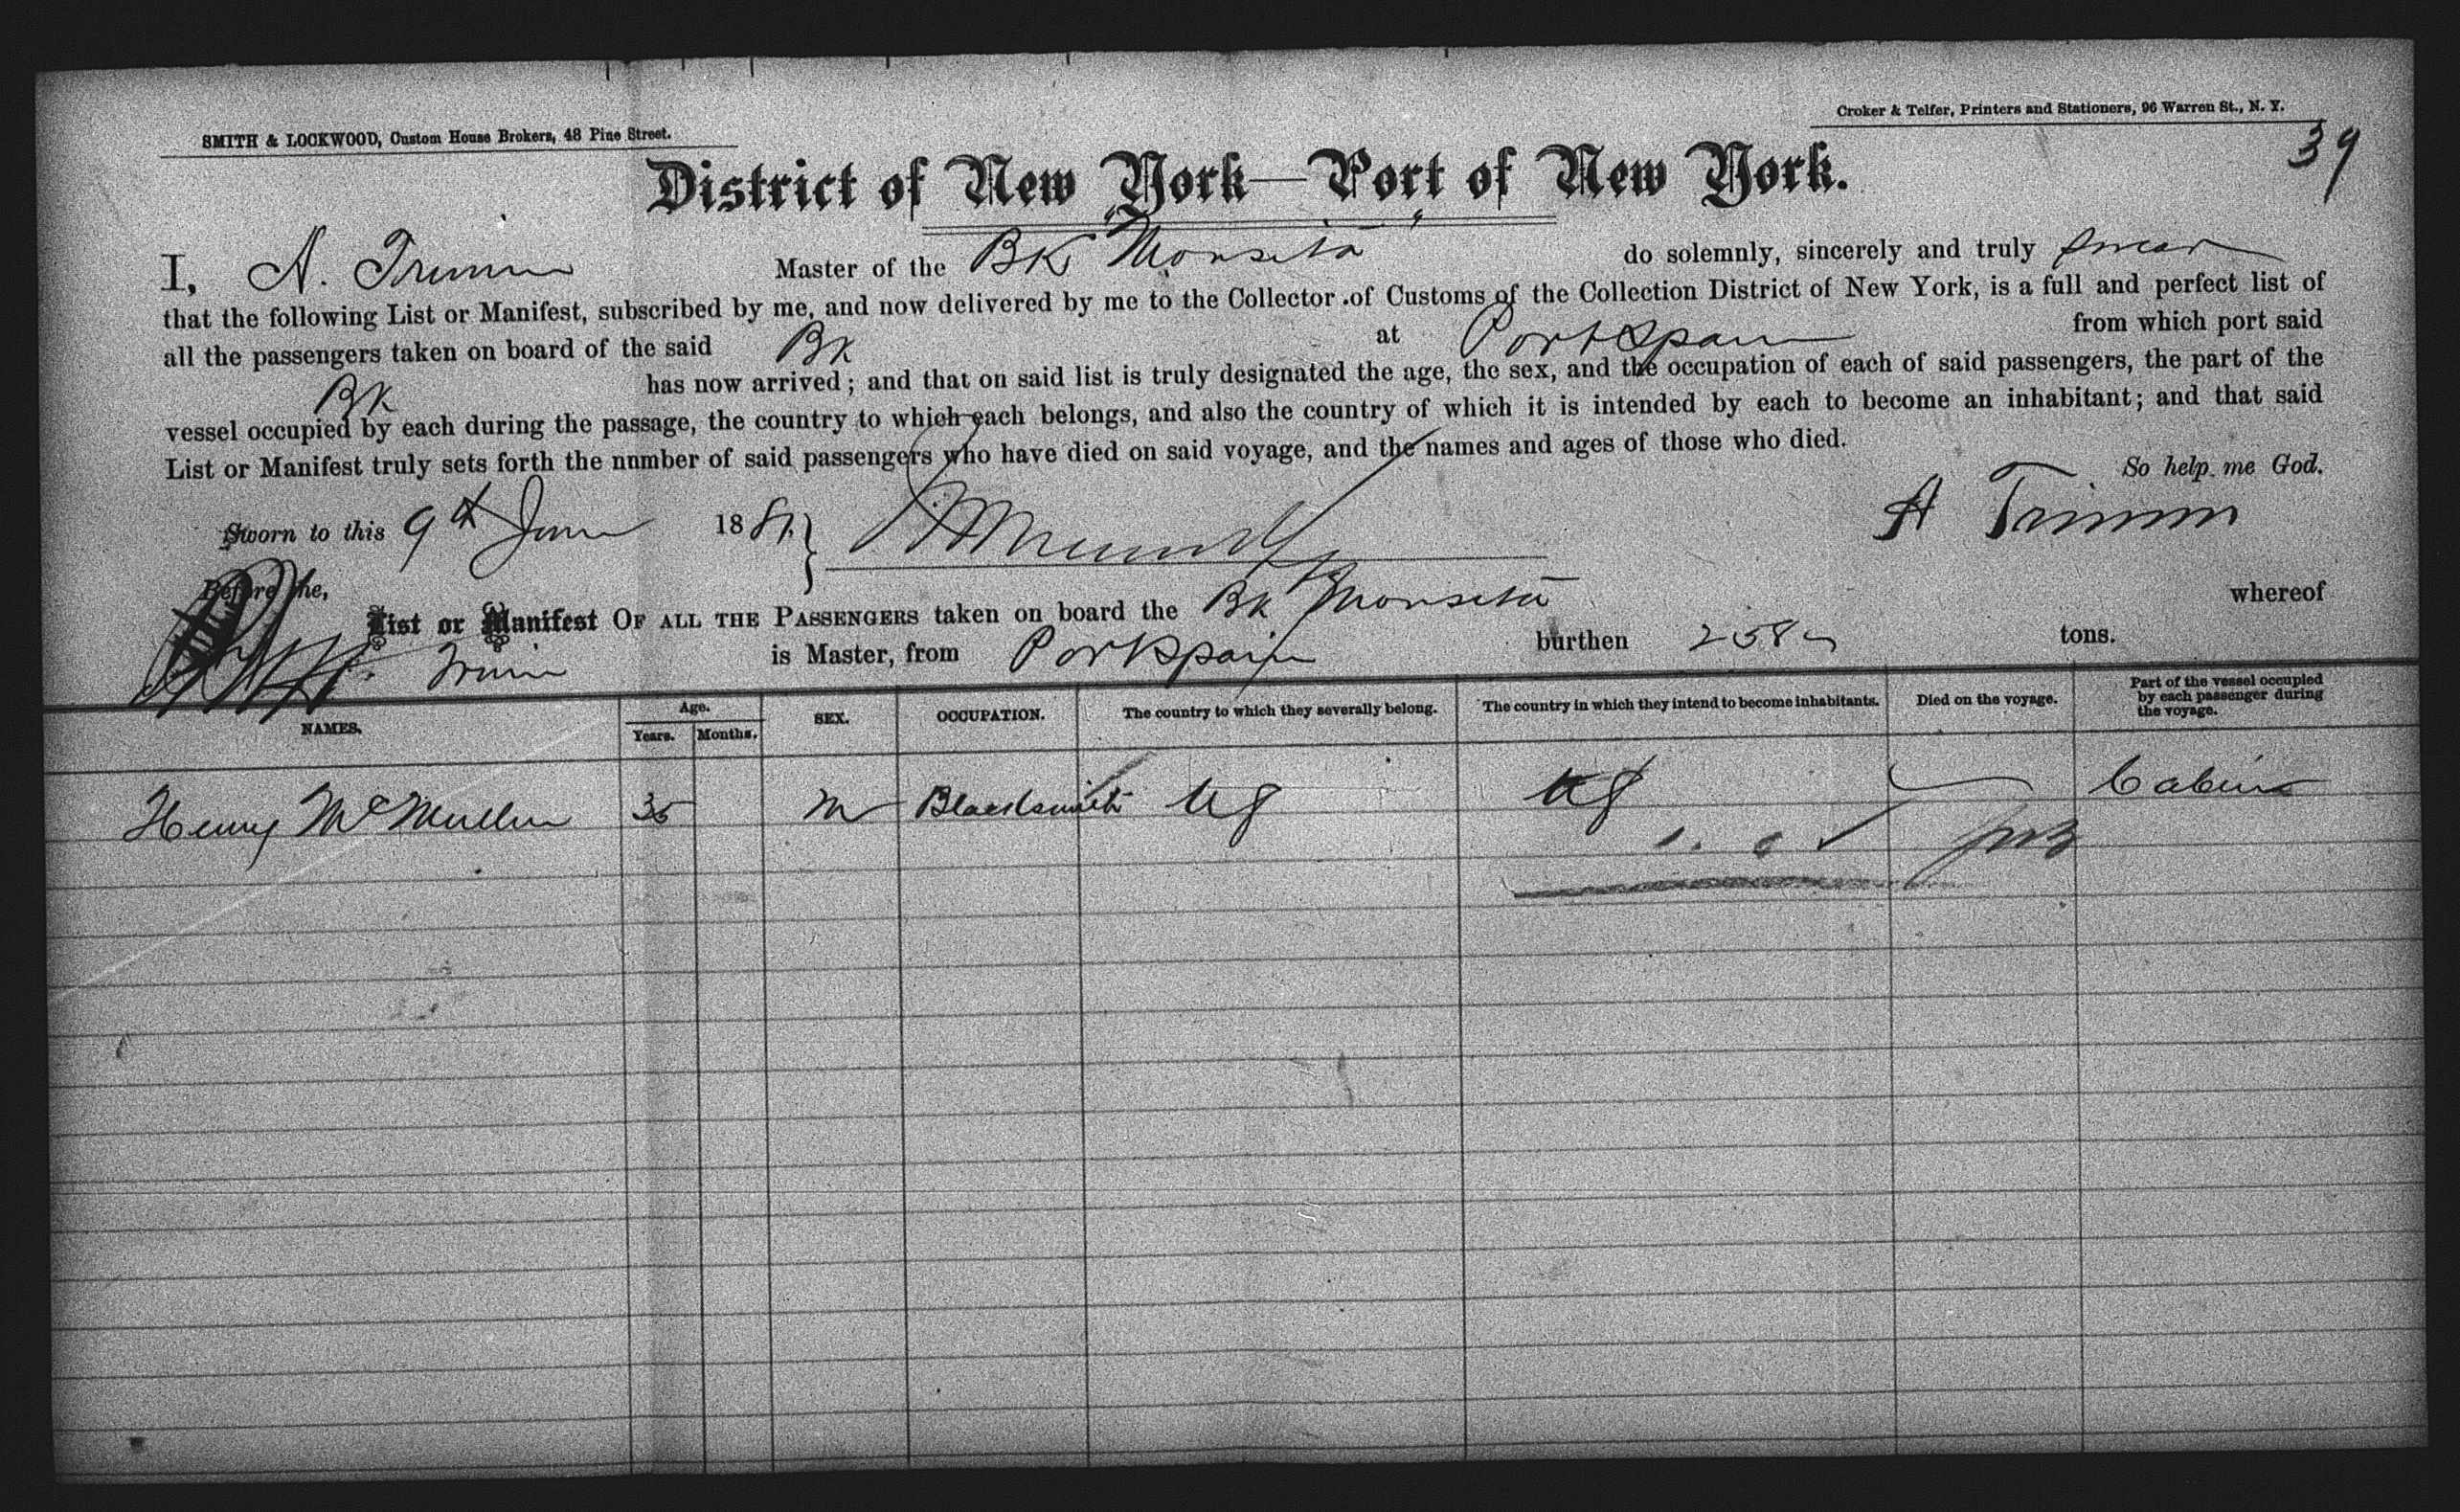 SMITH & LOCKWOOD, Custom House Brokers, 48 Pine Street.
Croker & Telfer, Printers and Stationers, 96 Warren St., N. Y.
39
District of New York—Port of New York.
I, A. Trimm Master of the Bk "Monsita" do solemnly, sincerely and truly swear
that the following List or Manifest, subscribed by me, and now delivered by me to the Collector of Customs of the Collection District of New York, is a full and perfect list of
all the passengers taken on board of the said Bk at Port Spain from which port said
Bk has now arrived; and that on said list is truly designated the age, the sex, and the occupation of each of said passengers, the part of the
vessel occupied by each during the passage, the country to which each belongs, and also the country of which it is intended by each to become an inhabitant; and that said
List or Manifest truly sets forth the nnmber of said passengers who have died on said voyage, and the names and ages of those who died.
So help me God.
Sworn to this 9th June 1881. A Trimm
Before me,
List or Manifest OF ALL THE PASSENGERS taken on board the Bk Monsita whereof
Trimm is Master, from Port Spain burthen 258 tons.
NAMES. Age. Years. Months. SEX. OCCUPATION. The country to which they severally belong. The country in which they intend to become inhabitants. Died on the voyage. Part of the vessel occupied by each passenger during the voyage.
Henry McMullen 35 M Blacksmith US US Cabin